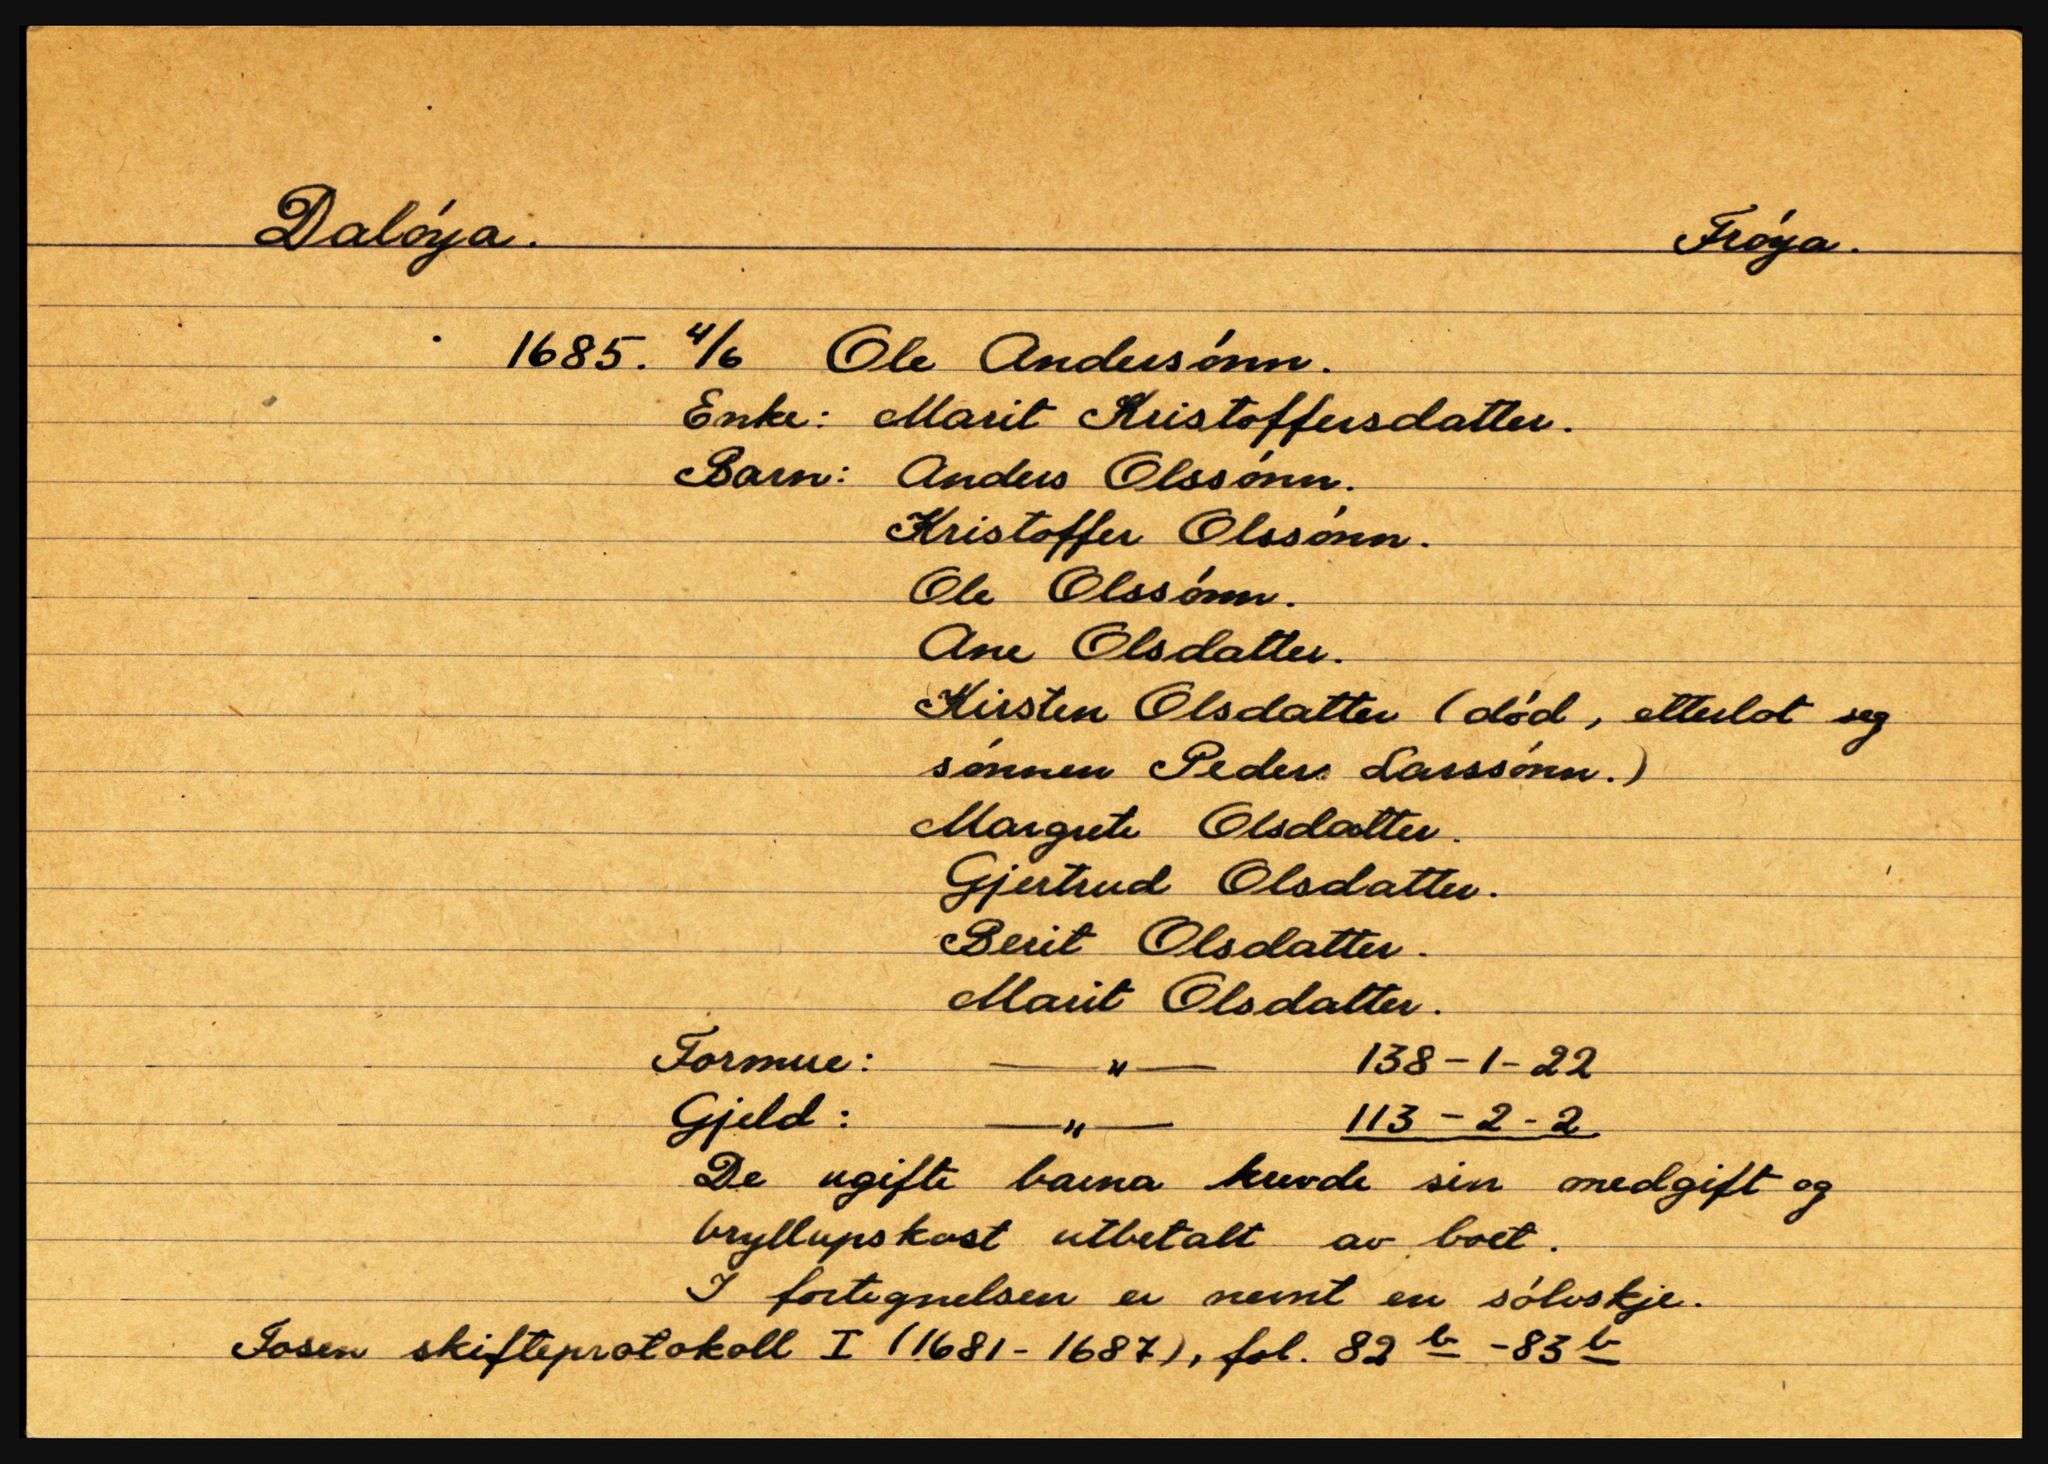 Dalóya. Fróya.
1685. 4/6 Ole Andersónn.
Enke: Marit Kristoffersdatter.
Barn: Anders Olssónn.
Kristoffer Olssónn.
Ole Olssónn.
Ane Olsdatter.
Kirsten Olsdatter (dód, etterlot seg
sónnen Peder Larssónn.)
Margrete Olsdatter.
Gjertrud Olsdatter.
Berit Olsdatter.
Marit Olsdatter.
Formue: — " — 138-1-22
Gjeld: — " — 113-2-2
De ugifte barna krevde sin medgift og
bryllupskost utbetalt av boet.
I fortegnelsen er nevnt en sólvskje.
Fosen skifteprotokoll I (1681-1687), fol. 82 b -83 b